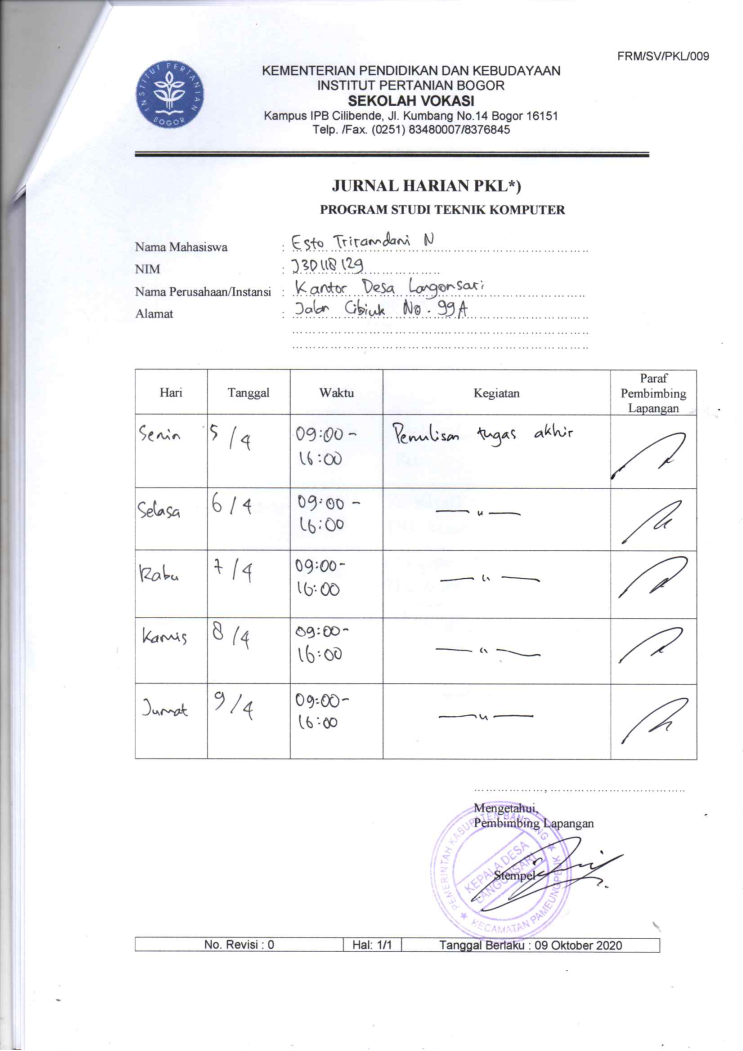 FRM/SV/PKL/009
INSTITUT PERTANIAN
BOGOR
KEMENTERIAN PENDIDIKAN DAN KEBUDAYAAN
INSTITUT PERTANIAN BOGOR
SEKOLAH VOKASI
Kampus IPB Cilibende, Jl. Kumbang No.14 Bogor 16151
Telp. /Fax. (0251) 83480007/8376845
JURNAL HARIAN PKL*)
PROGRAM STUDI TEKNIK KOMPUTER
Nama Mahasiswa : Esto Triramdani N
NIM : J3D118129
Nama Perusahaan/Instansi : Kantor Desa Langonsari
Alamat : Jalan Cibiuk No. 99A
Hari Tanggal Waktu Kegiatan Paraf Pembimbing Lapangan
Senin 5/4 09:00 - 16:00 Penulisan tugas akhir
Selasa 6/4 09:00 - 16:00 — u —
Rabu 7/4 09:00 - 16:00 — u —
Kamis 8/4 09:00 - 16:00 — u —
Jumat 9/4 09:00 - 16:00 — u —
Mengetahui,
Pembimbing Lapangan
Stempel
PEMERINTAH KABUPATEN BANDUNG
KEPALA DESA
LANGONSARI
KECAMATAN PAMEUNGPEUK
No. Revisi : 0 Hal: 1/1 Tanggal Berlaku : 09 Oktober 2020